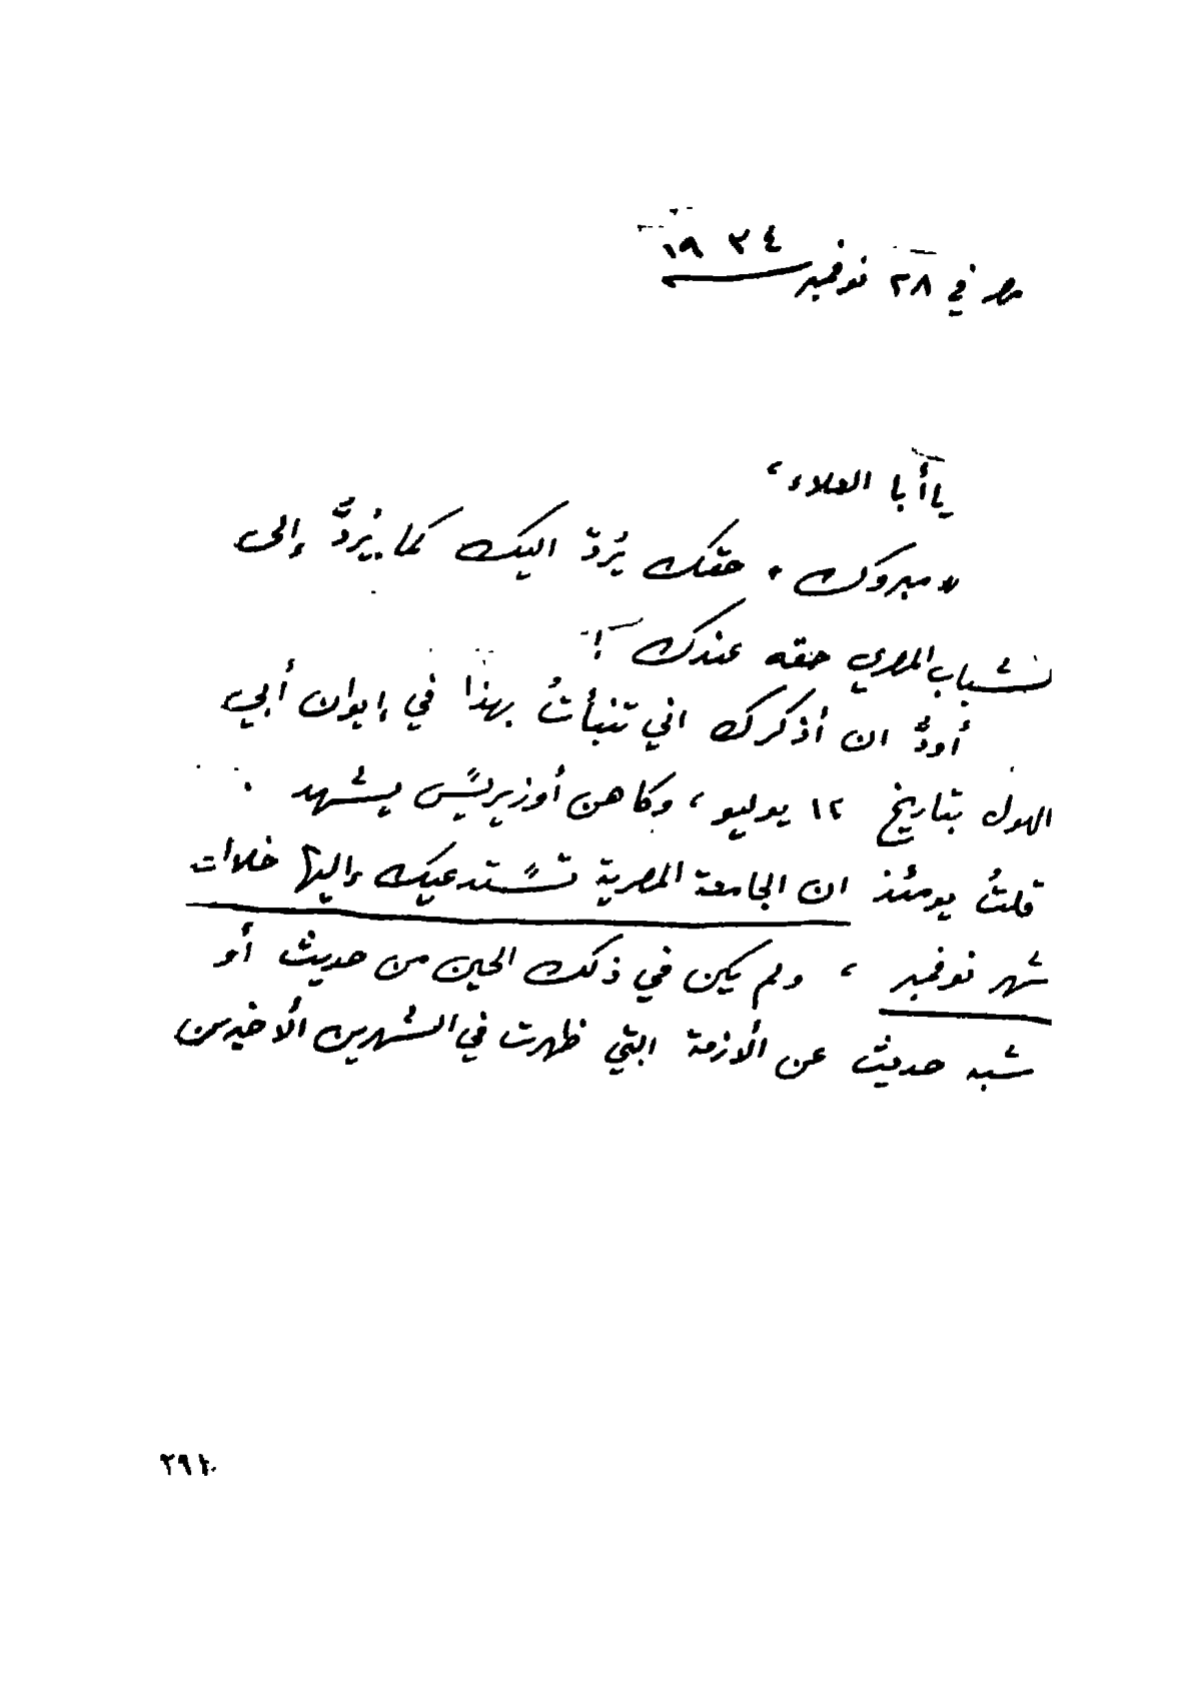 مصر في ٢٨ نوفمبر ١٩٣٤
يا أبا العلاء ،
« مبروك » حقك يُردّ اليك كما يُردُّ إلى
الشباب المصري حقه عندك !
أودُّ ان أذكرك اني تنبأتُ بهذا في إيوان أبي
الهول بتاريخ ١٢ يوليو ، وكاهن أوزيريس يشهد .
قلتُ يومئذ ان الجامعة المصرية تستدعيك إليها خلال
شهر نوفمبر ، ولم يكن في ذلك الحين من حديث أو
شبه حديث عن الأزمة التي ظهرت في الشهرين الأخيرين